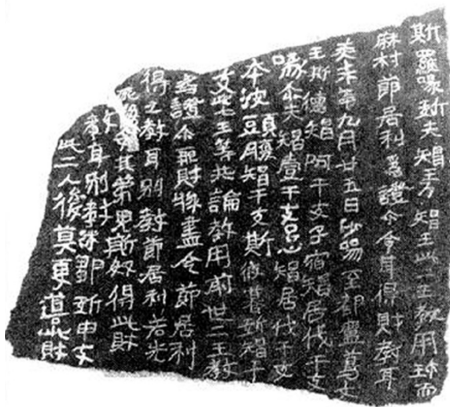 斯羅喙斯夫智王乃智王此二王教用珎而
麻村節居利爲證尒令其得財教耳
癸未年九月廿五日沙喙至都盧葛文
王斯德智阿干支子宿智居伐干支
喙尒夫智壹干支只心智居伐干支
本彼頭腹智干支斯彼暮斯智干
支此七王等共論教用前世二王教
爲證尒取財物盡令節居利
得之教耳別教節居利若先
死後令其弟兒斯奴得此財
教耳別教末鄒斯申支
此二人後莫更導此財